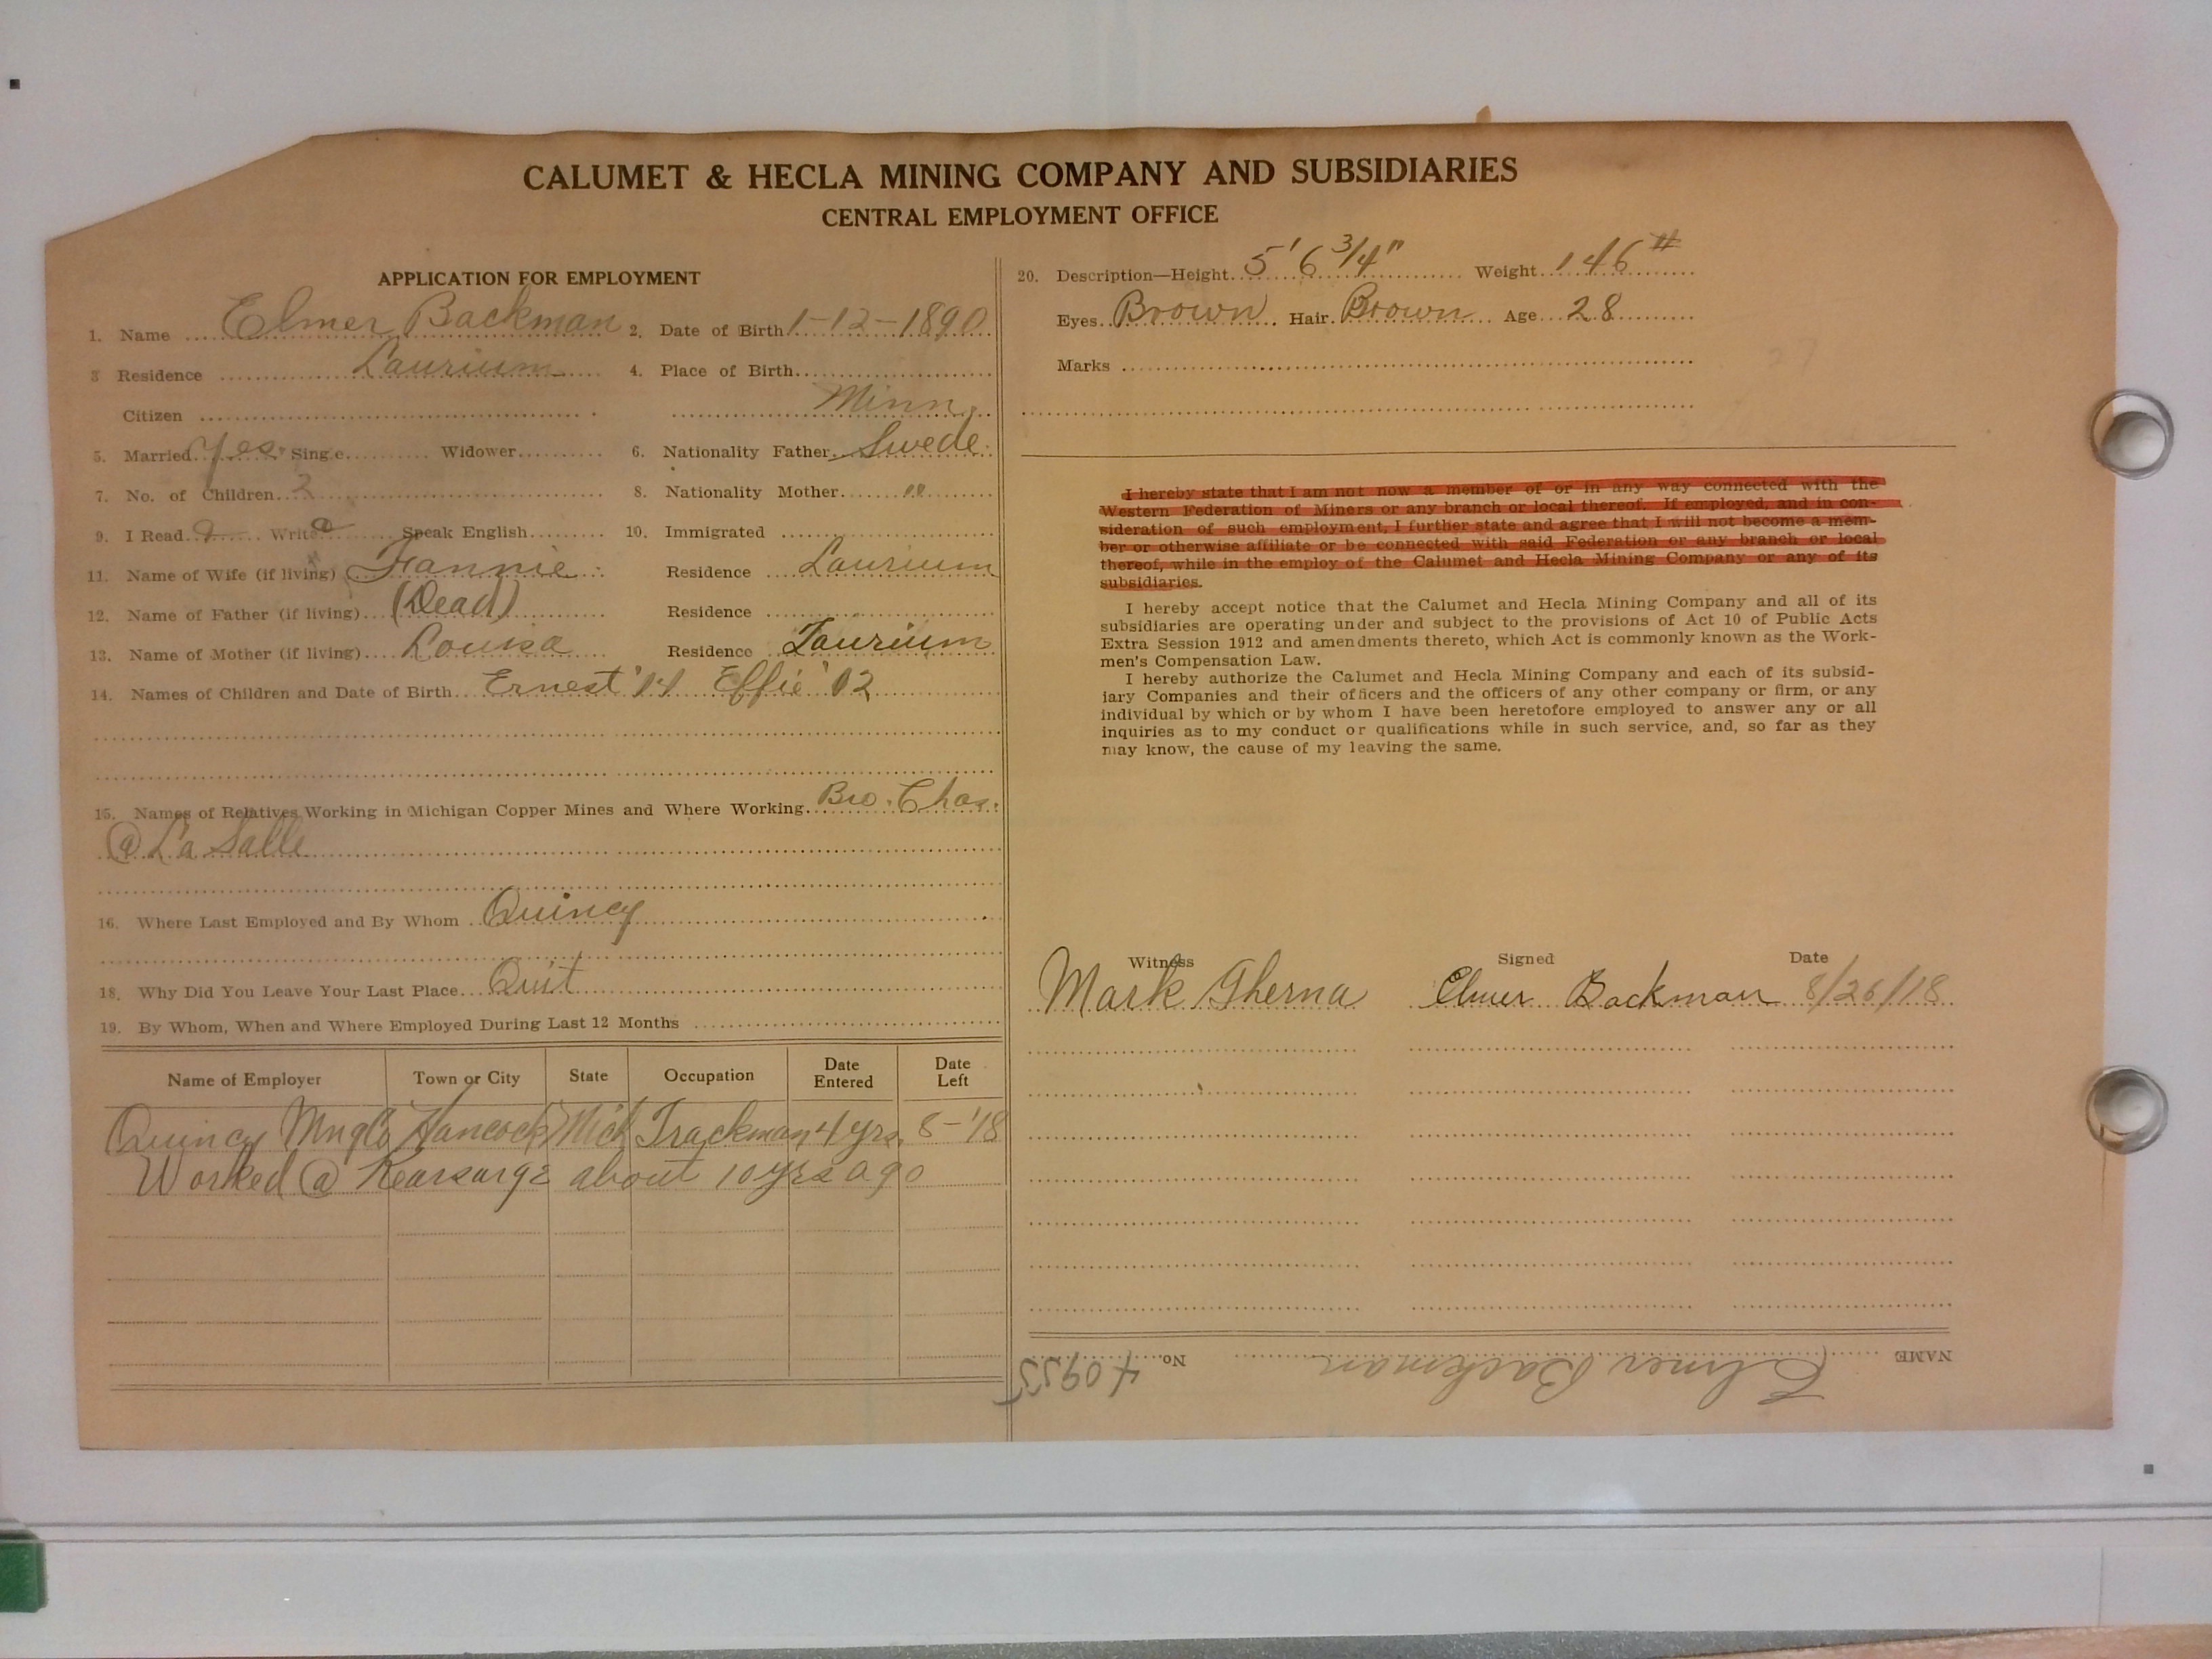 CALUMET & HECLA MINING COMPANY AND SUBSIDIARIES
CENTRAL EMPLOYMENT OFFICE
APPLICATION FOR EMPLOYMENT
1. Name Elmer Backman 2. Date of Birth 1-12-1890
3 Residence Laurium 4. Place of Birth
Citizen Minn.
5. Married Yes Sing e Widower 6. Nationality Father Swede
7. No. of Children 2 8. Nationality Mother "
9. I Read Write Speak English 10. Immigrated
11. Name of Wife (if living) Fannie Residence Laurium
12. Name of Father (if living) (Dead) Residence
13. Name of Mother (if living) Louisa Residence Laurium
14. Names of Children and Date of Birth Ernest '14 Effie '12
15. Names of Relatives Working in Michigan Copper Mines and Where Working Bro. Chas.
@ La Salle
16. Where Last Employed and By Whom Quincy
18. Why Did You Leave Your Last Place Quit
19. By Whom, When and Where Employed During Last 12 Months
Name of Employer Town or City State Occupation Date Entered Date Left
Quincy Mng Co Hancock Mich Trackman 4 yrs. 8-'18
Worked @ Kearsarge about 10 yrs ago
20. Description—Height 5' 6 3/4" Weight 146 #
Eyes Brown Hair Brown Age 28
Marks
27
I hereby state that I am not now a member of or in any way connected with the
Western Federation of Miners or any branch or local thereof. If employed, and in con-
sideration of such employment, I further state and agree that I will not become a mem-
ber or otherwise affiliate or be connected with said Federation or any branch or local
thereof, while in the employ of the Calumet and Hecla Mining Company or any of its
subsidiaries.
I hereby accept notice that the Calumet and Hecla Mining Company and all of its
subsidiaries are operating under and subject to the provisions of Act 10 of Public Acts
Extra Session 1912 and amendments thereto, which Act is commonly known as the Work-
men's Compensation Law.
I hereby authorize the Calumet and Hecla Mining Company and each of its subsid-
iary Companies and their officers and the officers of any other company or firm, or any
individual by which or by whom I have been heretofore employed to answer any or all
inquiries as to my conduct or qualifications while in such service, and, so far as they
may know, the cause of my leaving the same.
Witness Signed Date
Mark Gherna Elmer Backman 8/26/18
NAME Elmer Backman No. 40955